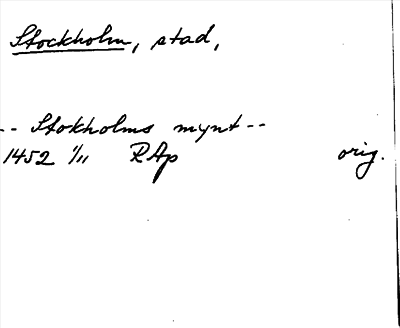 Stockholm, stad,
-- Stokholms mynt --
1452 1/11 RAp orig.